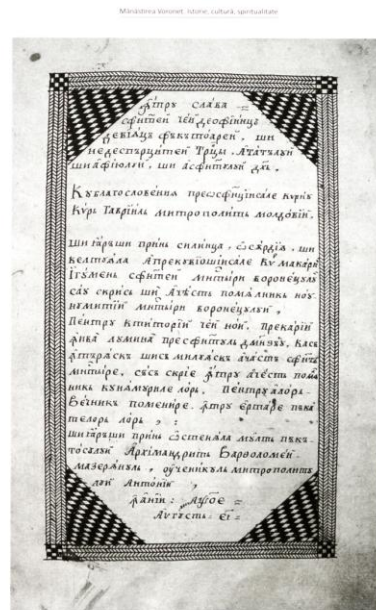 Mănăstirea Voroneț. Istorie, cultură, spiritualitate
Ꙟтру слава
сфинтей чей деѡфиинцъ
де вїацъ фъкътоарей, ши
недеспърцитей Трцы. Ататълуй
ши афїюлуй, ши асфитулуй дх҃.
Кублагословенїѧ преѡсфинцїисале
Кѵрь Гаврїиль митрополить молдовїй,
ши ꙗръши принь силинца, ѡсардїѧ, ши
келтоала апрекувїошїисале Кѵ макарїе
Iгꙋмень сфитей мнтири воронецулуй
сау скрись ши ачесть помѣлникь ноу
нумитїй мнтири воронецулуй,
Пентру ктиторїй чей ной. Прекарїй
лумина пресфитуль дмнезъу, касъ
шисъ милуѧскъ ачастъ сфитъ
мнтире, съсъ скрїе ꙟтру ачесть помѣл
никь кунамуриле лорь, Пентруалорь
вечникь поменире. ꙟтру ертаре пъка
телорь лорь,
ши ꙗръши принь ѡстенѣла мулть пъкъ
тосулуй Архїмандрить Варѳоломей
Мазерѣнуль, оученикуль митрополить
луй Антонїй
Ꙟанїй: ҂аѱ҃ое
Аугусть: еі҃: